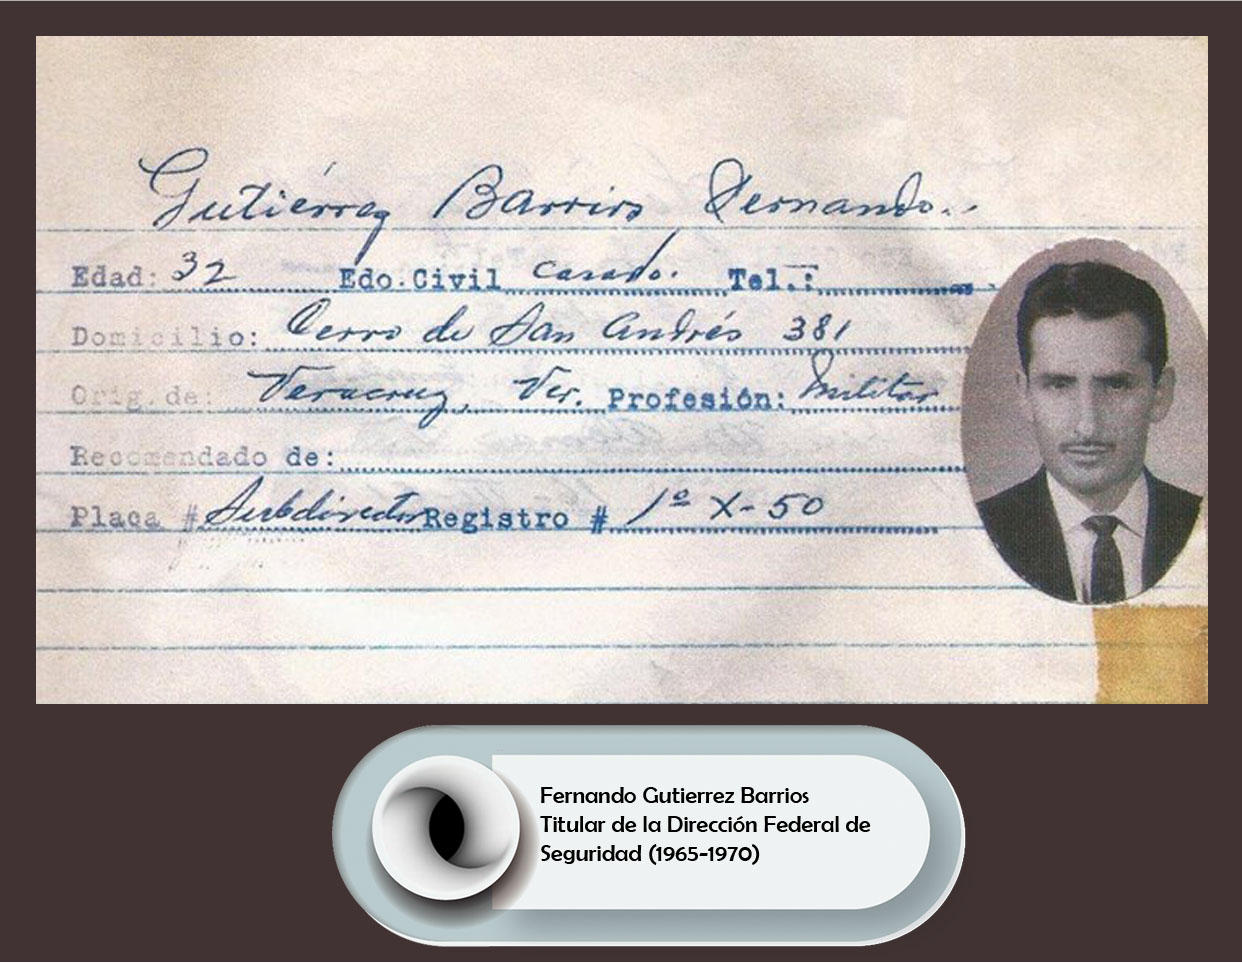 Gutiérrez Barrios Fernando.
Edad: 32 Edo.Civil casado. Tel.:
Domicilio: Cerro de San Andrés 381
Orig.de: Veracruz, Ver. Profesión: Militar
Recomendado de:
Placa # Subdirector Registro # 1º X-50
Fernando Gutierrez Barrios
Titular de la Dirección Federal de
Seguridad (1965-1970)